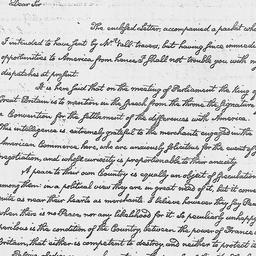 Dear Sir
The enclosed Letter, accompanied a packet wh
I intended to have sent by Mr. Vall travers, but having since immed
opportunities to America from hence, I shall not trouble you with m
dispatches at present.
It is here said that on the meeting of Parliament the King of
Great Britain is to mention in the speech from the throne, the signature
a Convention for the settlement of the differences with America.
This intelligence is extremely grateful to the merchants engaged in the
American Commerce here, who are anxiously solicitous for the event of
negotiation, and whose curiosity is proportionable to their anxiety.
A peace to their own Country is equally an object of speculation
among them: in a political view they are in great need of it, but it com
quite as near their hearts as merchants. I believe however they say Peace
when there is no Peace, nor any likelihood for it. So peculiarly unhappy
perilous is the condition of the Country, between the power of France
Britain, that either is competent to destroy, and neither to protect it